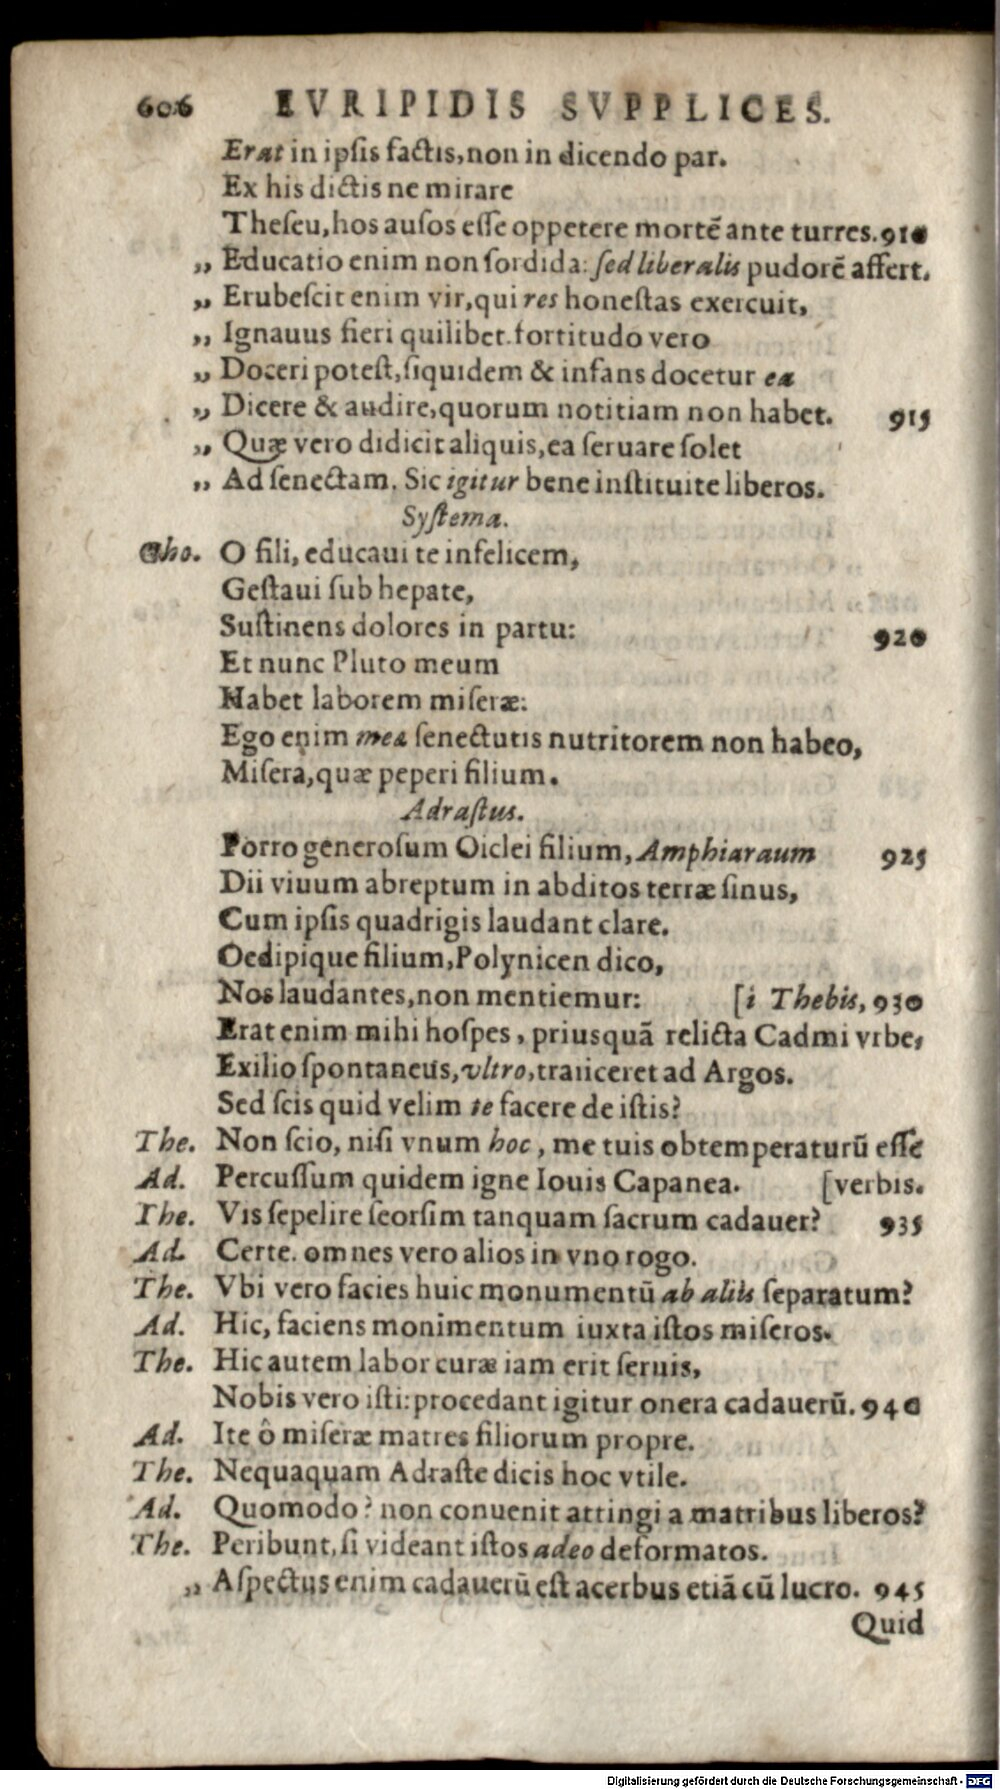 606 EVRIPIDIS SVPPLICES.
Erat in ipſis factis, non in dicendo par.
Ex his dictis ne mirare
Theſeu, hos auſos eſſe oppetere mortē ante turres. 910
„ Educatio enim non ſordida: ſed liberalis pudorē affert.
„ Erubeſcit enim vir, qui res honeſtas exercuit,
„ Ignauus fieri quilibet. fortitudo vero
„ Doceri poteſt, ſiquidem & infans docetur ea
„ Dicere & audire, quorum notitiam non habet. 915
„ Quæ vero didicit aliquis, ea ſeruare ſolet
„ Ad ſenectam. Sic igitur bene inſtituite liberos.
Syſtema.
Cho. O fili, educaui te infelicem,
Geſtaui ſub hepate,
Suſtinens dolores in partu: 920
Et nunc Pluto meum
Habet laborem miſeræ:
Ego enim mea ſenectutis nutritorem non habeo,
Miſera, quæ peperi filium.
Adraſtus.
Porro generoſum Oiclei filium, Amphiaraum 925
Dii viuum abreptum in abditos terræ ſinus,
Cum ipſis quadrigis laudant clare.
Oedipique filium, Polynicen dico,
Nos laudantes, non mentiemur: [i Thebis, 930
Erat enim mihi hoſpes, priusquā relicta Cadmi vrbe,
Exilio ſpontaneus, vltro, traiiceret ad Argos.
Sed ſcis quid velim te facere de iſtis?
The. Non ſcio, niſi vnum hoc, me tuis obtemperaturū eſſe
Ad. Percuſſum quidem igne Iouis Capanea. [verbis.
The. Vis ſepelire ſeorſim tanquam ſacrum cadauer? 935
Ad. Certe. omnes vero alios in vno rogo.
The. Vbi vero facies huic monumentū ab aliis ſeparatum?
Ad. Hic, faciens monimentum iuxta iſtos miſeros.
The. Hic autem labor curæ iam erit ſeruis,
Nobis vero iſti: procedant igitur onera cadauerū. 940
Ad. Ite ô miſeræ matres filiorum propre.
The. Nequaquam Adraſte dicis hoc vtile.
Ad. Quomodo? non conuenit attingi a matribus liberos?
The. Peribunt, ſi videant iſtos adeo deformatos.
„ Aſpectus enim cadauerū eſt acerbus etiā cū lucro. 945
Quid
Digitalisierung gefördert durch die Deutsche Forschungsgemeinschaft - DFG